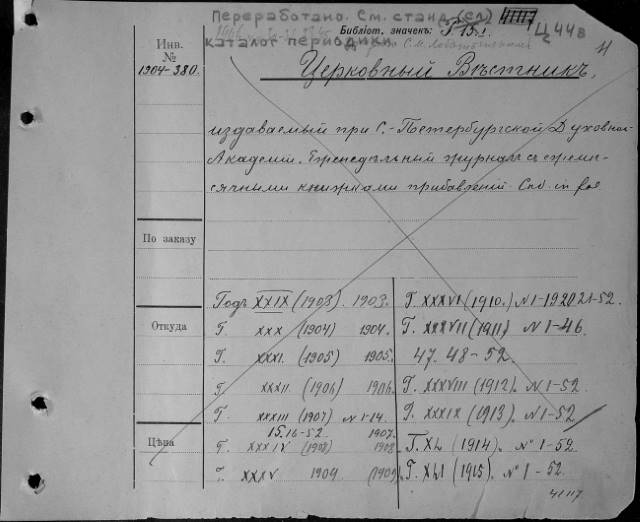 Переработано. См. станд. (сл)
каталог периодики.
Библіот. значекъ:
Ц 44в
Инв.
№
1904-380.
Церковный Вѣстникъ,
издаваемый при С.-Петербургской Духовной
Академіи. Еженедѣльный журналъ съ ежемѣ-
сячными книжками прибавленій. in fol.
По заказу
Откуда
Цѣна
Годъ XXIX (1903). 1903.
Г. XXX (1904) 1904.
Г. XXXI. (1905) 1905.
Г. XXXII. (1906) 1906.
Г. XXXIII (1907) N 1-14.
15.16-52. 1907.
Г. XXXIV (1908) 1908
Г. XXXV 1909 (1909)
Г. XXXVI (1910.) N 1-19 20 21-52.
Г. XXXVII (1911) N 1-46.
47. 48-52.
Г. XXXVIII (1912). N 1-52
Г. XXXIX (1913). N 1-52
Г. XL (1914). N° 1-52.
Г. XLI (1915). N° 1-52.
41117